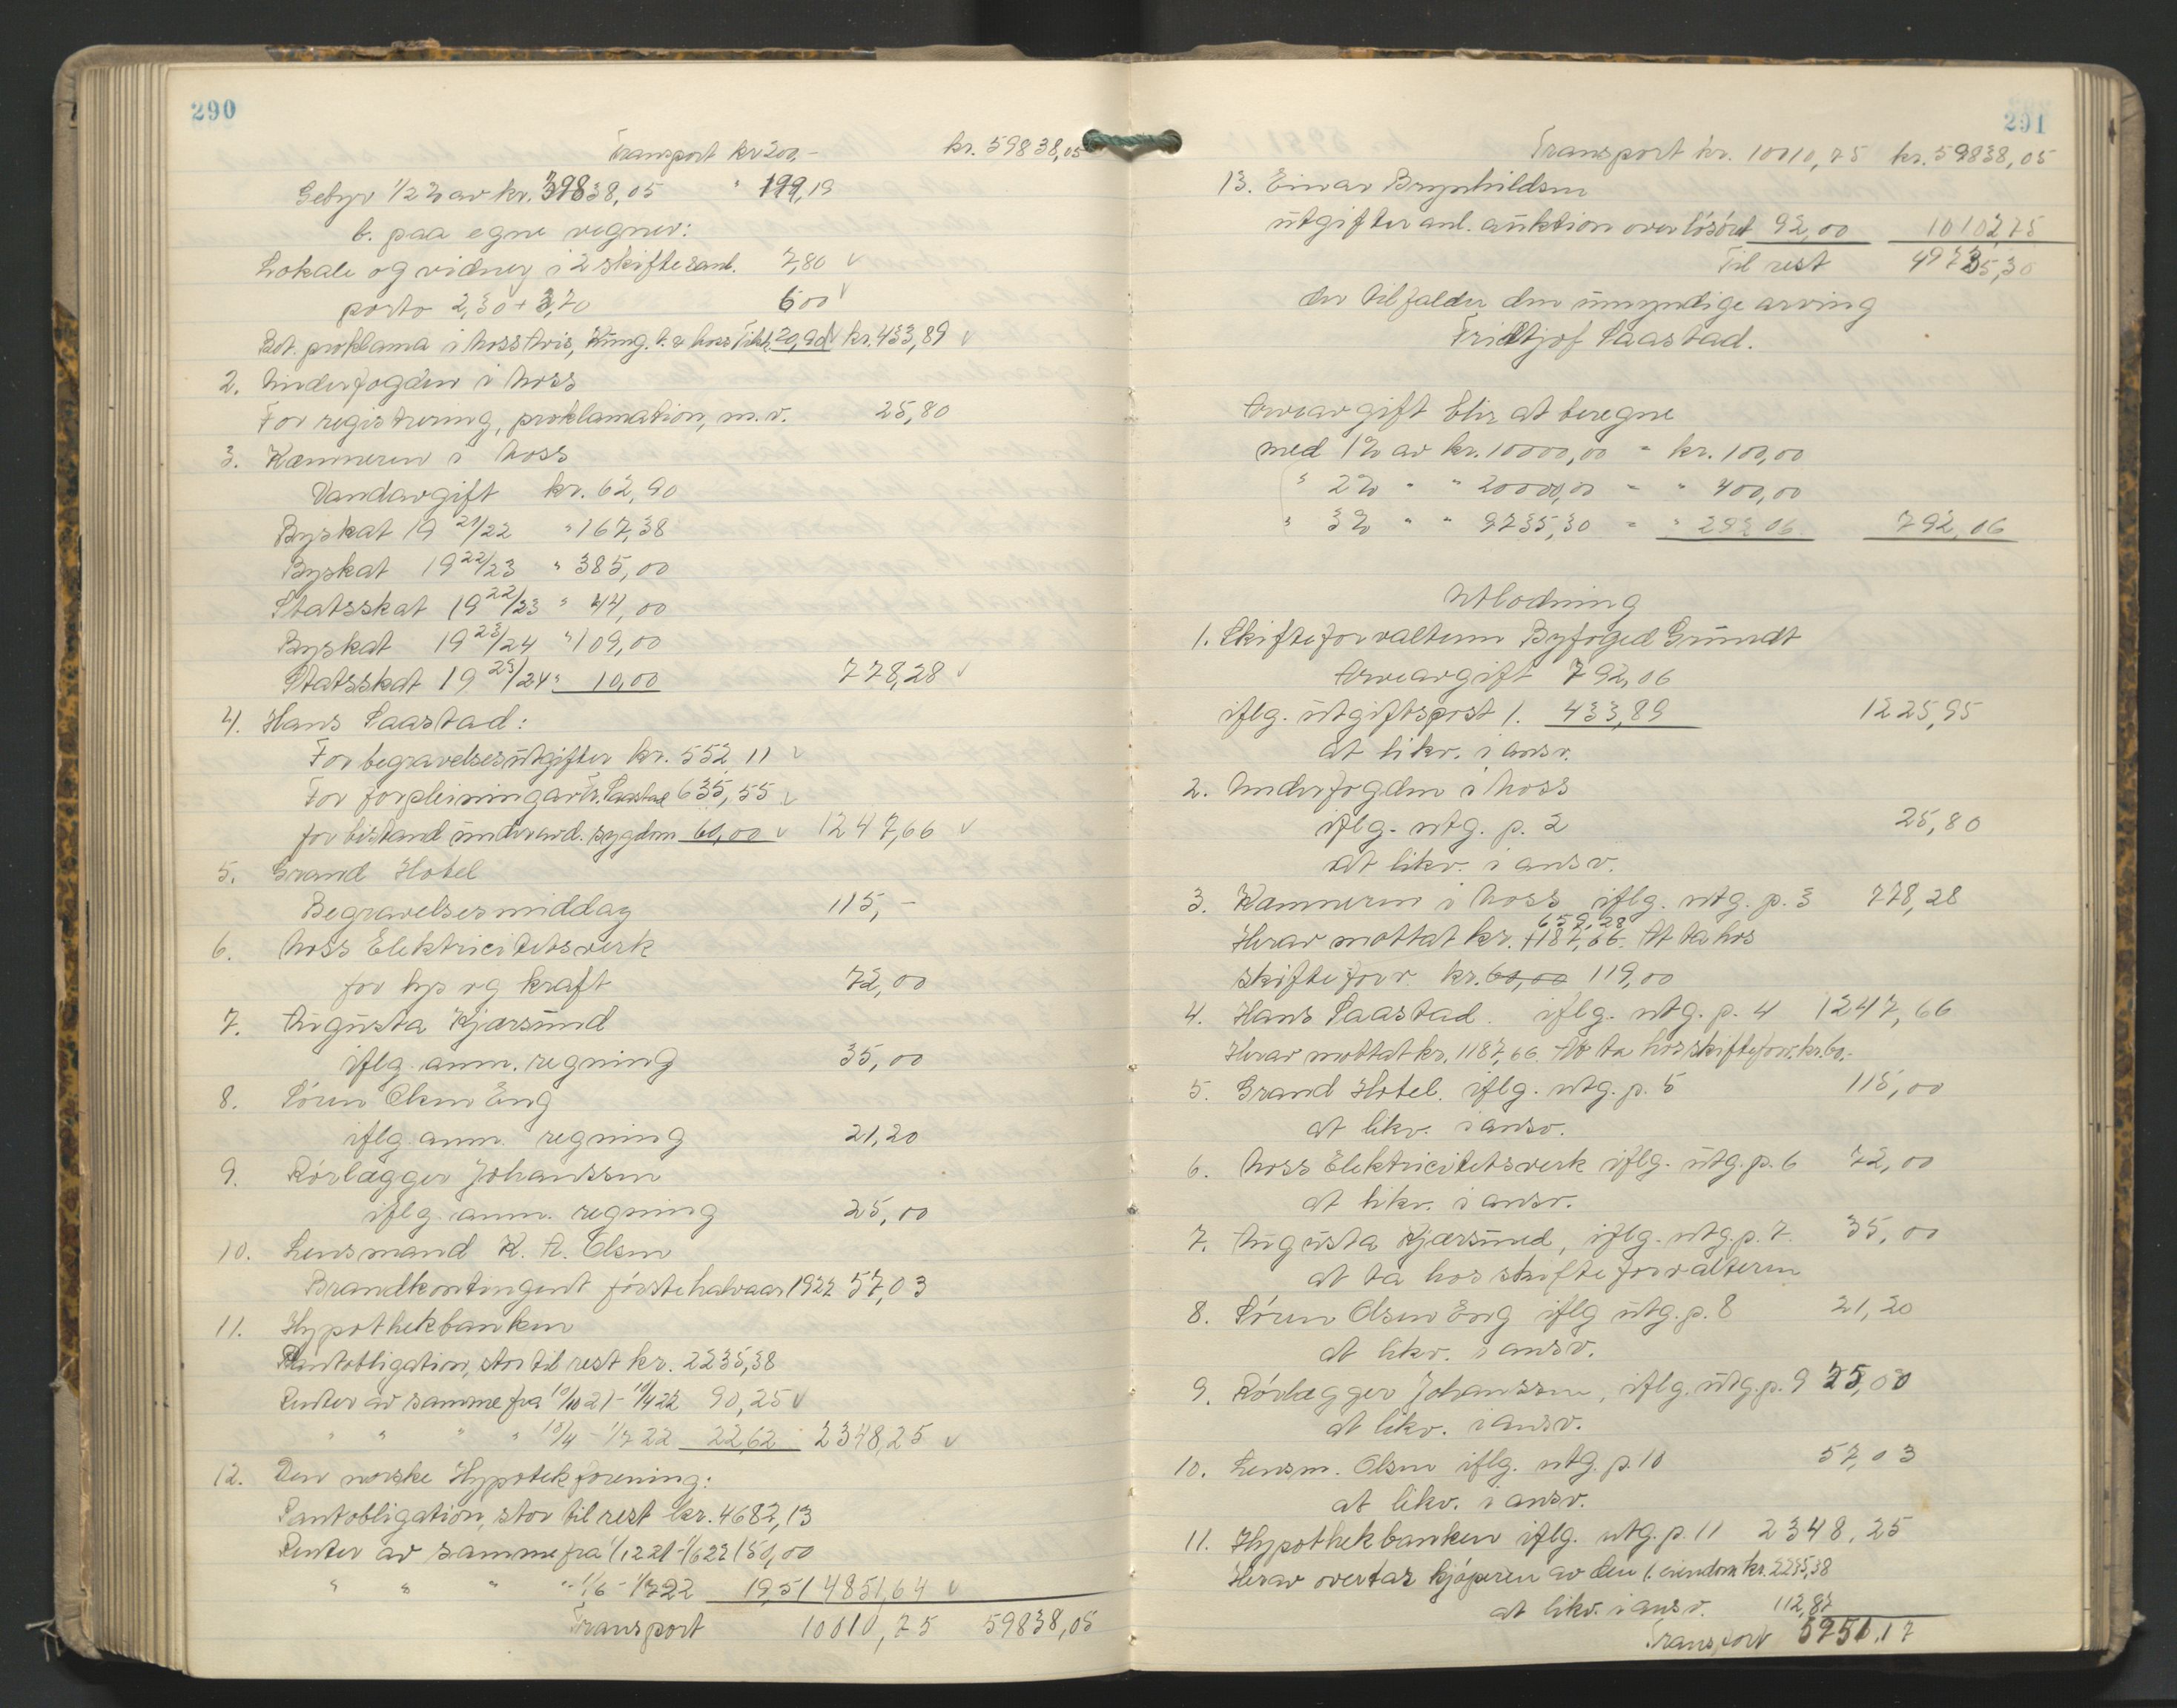 290
Transport kr 200,- kr. 59838,05
Gebyr 1/2 % av kr. 39838,05 " 199,19
b. paa egne vegner:
Lokale og vidner i 2 skiftesaml. 7,80 ✓
porto 2,30 + 3,70 6,00 ✓
Bet. proklama i Moss Avis, Kung. t. & Moss Tilsk. 20,90 ✓ kr. 433,89 ✓
2. Underfogden i Moss
For registrering, proklamation, m.v. 25,80
3. Kæmneren i Moss
Vandavgift kr. 62,90
Byskat 19 21/22 " 167,38
Byskat 19 22/23 " 385,00
Statsskat 19 22/23 " 44,00
Byskat 19 23/24 " 109,00
Statsskat 19 23/24 " 10,00 778,28 ✓
4. Hans Saastad:
For begravelsesutgifter kr. 552,11 ✓
For forpleining av Fr. Saastad 635,55 ✓
for bistand under avd. sygdom 60,00 ✓ 1247,66 ✓
5. Grand Hotel
Begravelsesmiddag 115,-
6. Moss Elektricitetsverk
for lys og kraft 72,00
7. Augusta Kjærsund
iflg. anm. regning 35,00
8. Søren Olsen Eng
iflg. anm. regning 21,20
9. Rørlægger Johanssen
iflg. anm. regning 25,00
10. Lensmand K. A. Olsen
Brandkontingent første halvaar 1922 57,03
11. Hypothekbanken
Pantobligation, stor til rest kr. 2235,38
Renter av samme fra 10/10 21 - 10/4 22 90,25 ✓
" " " " 10/4 - 1/7 22 22,62 2348,25 ✓
12. Den norske Hypotekforening:
Pantobligation, stor til rest kr. 4682,13
Renter av samme fra 1/12 21 - 1/6 22 150,00
" " " " 1/6 - 1/7 22 19,51 4851,64 ✓
Transport 10010,75 59838,05
291
Transport kr. 10010,75 kr. 59838,05
13. Einar Brynhildsen
utgifter anl. auktion over løsøret 92,00 10102,75
Til rest 49735,30
der tilfalder den umyndige arving
Fridtjof Saastad.
Arveavgift blir at beregne
med 1% av kr. 10000,00 = kr. 100,00
" 2% " " 20000,00 = " 400,00
" 3% " " 9735,30 = " 292,06 792,06
Utlodning
1. Skifteforvalteren Byfoged Grundt
Arveavgift 792,06
iflg. utgiftspost 1. 433,89 1225,95
at likv. i ansv.
2. Underfogden i Moss
iflg. utg. p. 2 25,80
at likv. i ansv.
3. Kæmneren i Moss iflg. utg. p. 3 778,28
659,28
Herav mottat kr. 1187,66. At ta hos
skifteforv. kr. 60,00 119,00
4. Hans Saastad. iflg. utg. p. 4 1247,66
Herav mottat kr. 1187,66. At ta hos skifteforv. kr. 60.-
5. Grand Hotel. iflg. utg. p. 5 115,00
at likv. i ansv.
6. Moss Elektricitetsverk iflg. utg. p. 6 72,00
at likv. i ansv.
7. Augusta Kjærsund, iflg. utg. p. 7. 35,00
at ta hos skifteforvalteren
8. Søren Olsen Eng iflg utg. p. 8 21,20
at likv. i ansv.
9. Rørlægger Johanssen, iflg. utg. p. 9 25,00
at likv. i ansv.
10. Lensm. Olsen iflg. utg. p. 10 57,03
at likv. i ansv.
11. Hypothekbanken iflg. utg. p. 11 2348,25
Herav overtar kjøperen av den f. eiendom kr. 2235,38
at likv. i ansv. 112,87
Transport 5951,17